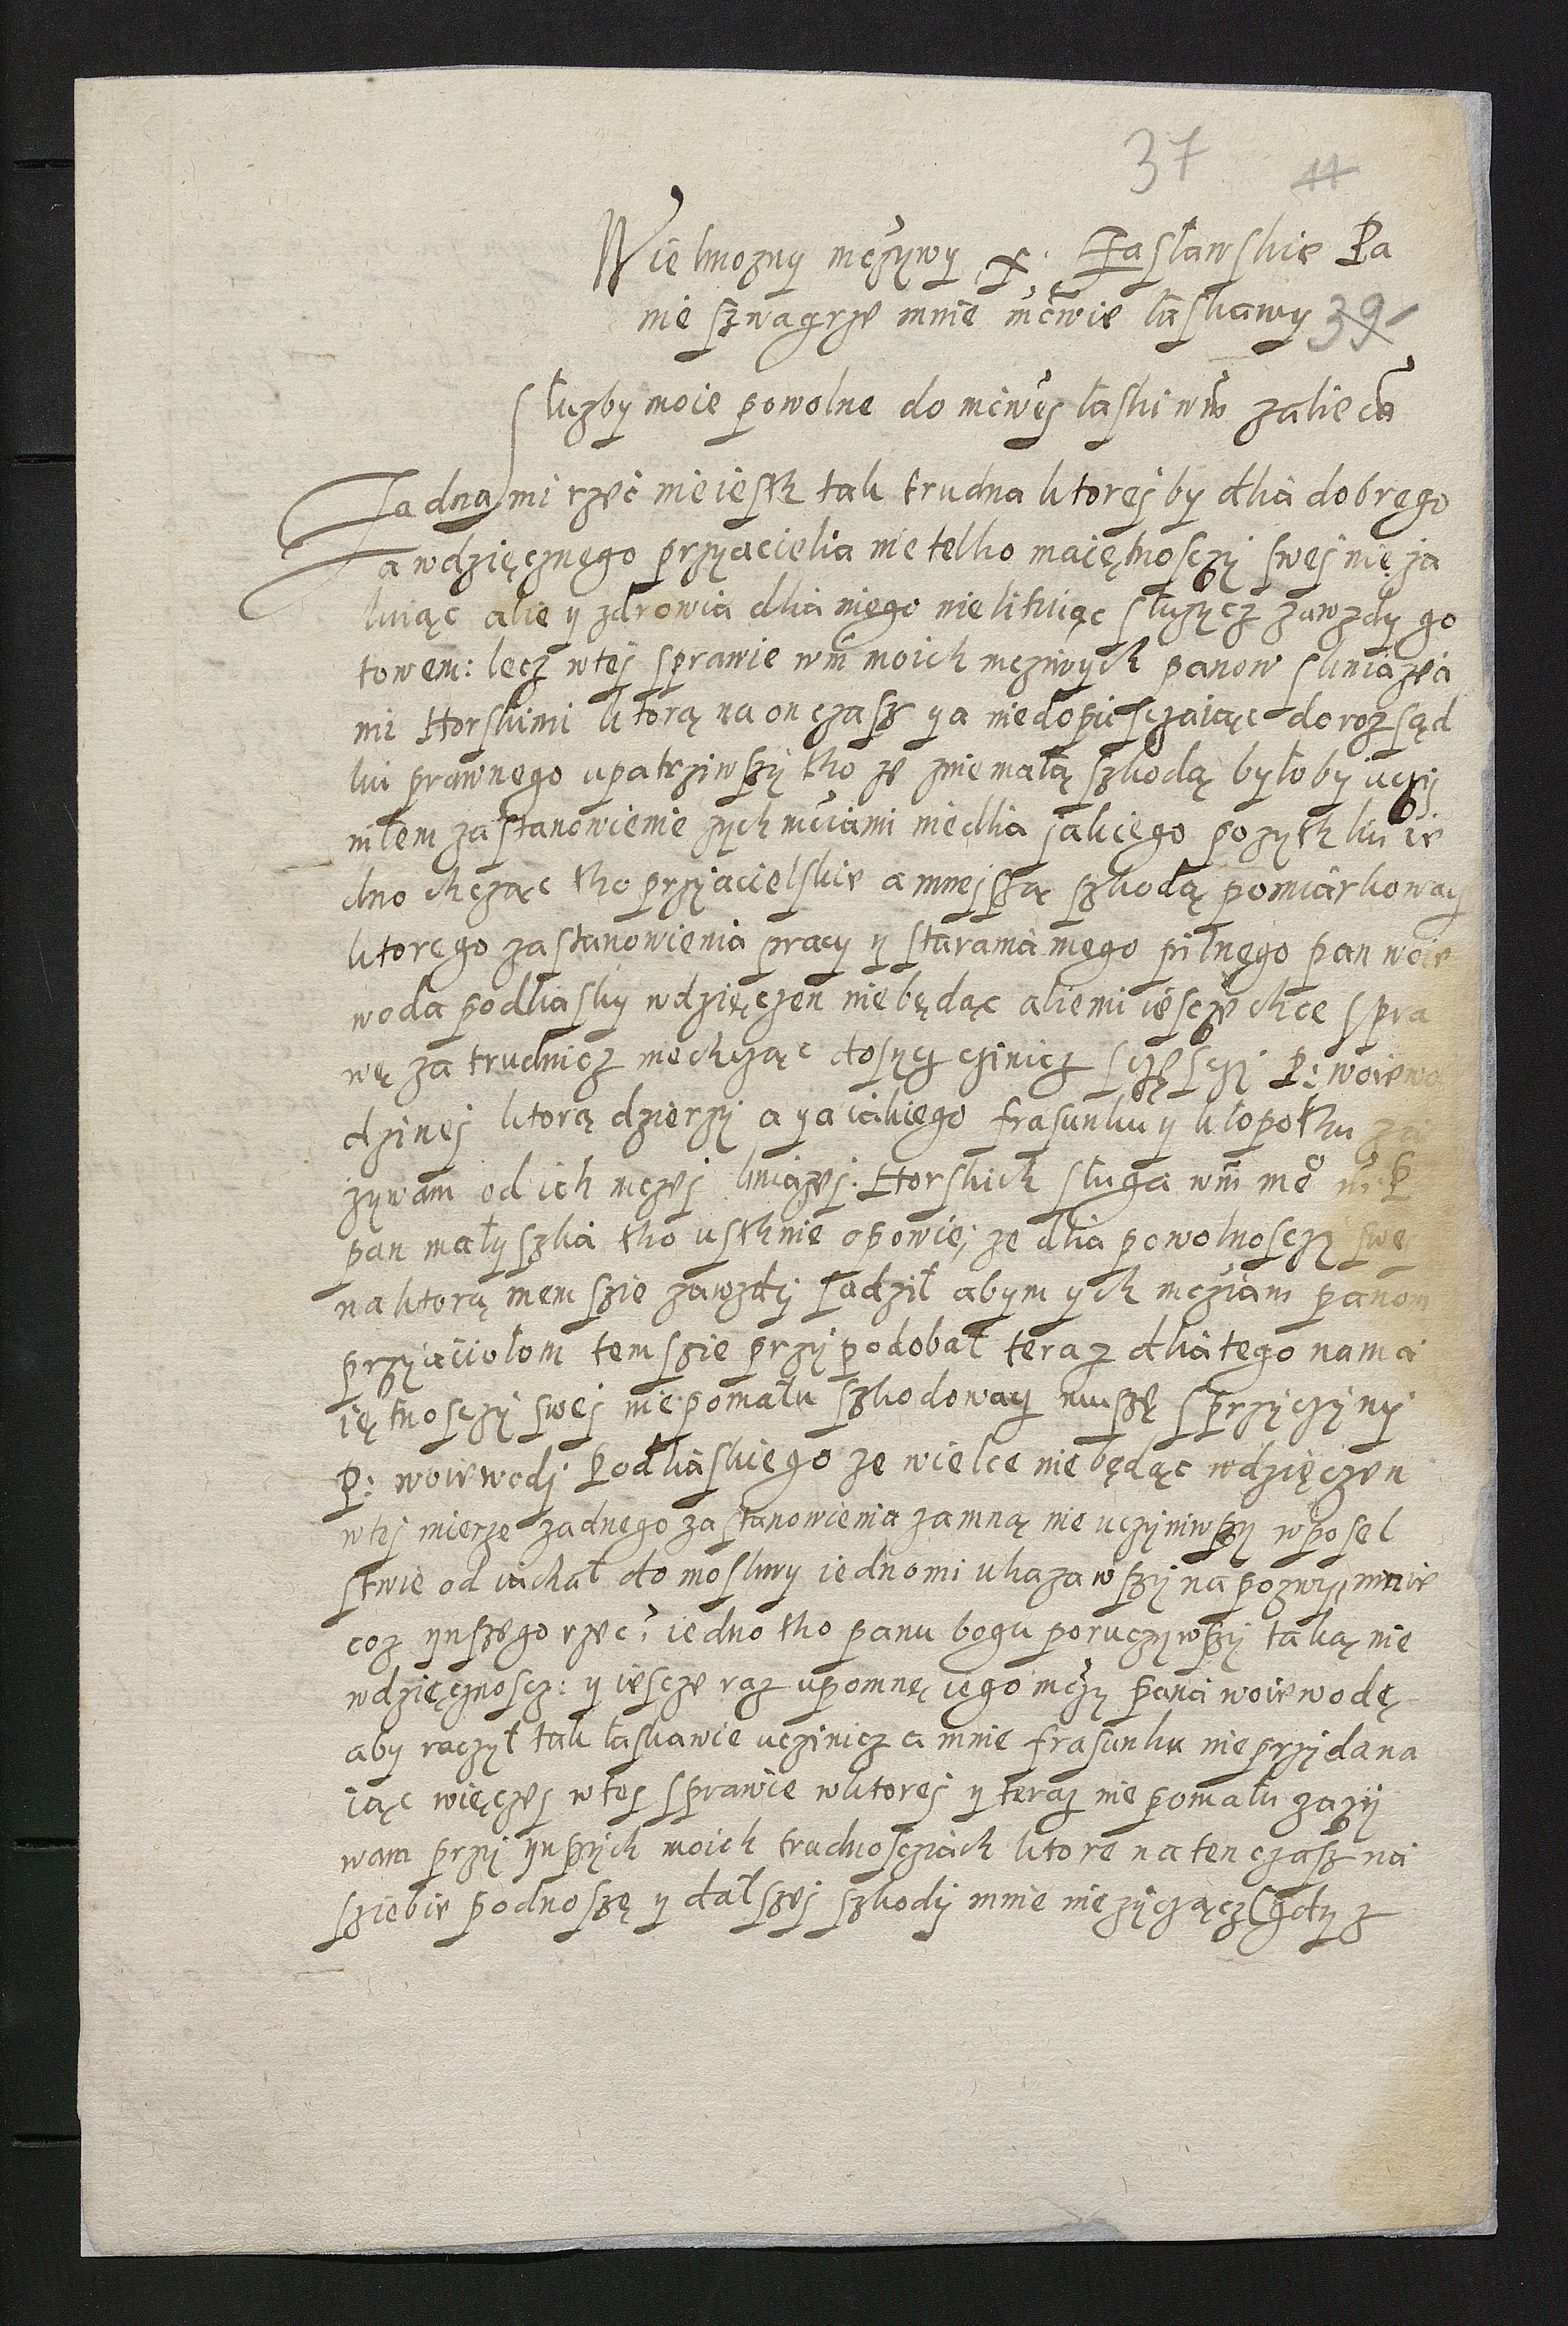 37 11
Wielmozny mczywy X: Zasławskie Pa
nie szwagrze mnie mcwie łaskawy 39
Słuzby moie powolne do mciwej łaski wm zaliecā
Zadna mi rzec nie iesth tak trudna ktorej by dlia dobrego
a wdzięcznego przyacielia nie telko maiętnosczy swej nie za
luiąc alie y zdrowia dlia niego nie lituiąc służycz zawzdy go
towem: lecz w tej sprawie wm moich mcziwych panow s kniazia
mi Horskimi ktorą na on czasz ya niedopusczaiąc do rozsąd
ku prawnego upatrziwszy tho ze znie małą szkodą byłoby uczy
niłem zastanowienie z ych mciami nie dlia jakiego pozythku ie
dno chcząc tho przyacielskie a mnejszą szkodą pomiarkowacz
ktorego zastanowienia pracy y starania mego pilnego pan woie
woda podliasky wdzięczen nie będąc alie mi iescze chce spra
wę zatrudnicz niechcząc dosycz czinicz sczęsczy P: woiewo
dzinej ktorą dzierzy a ya iakiego frasunku y kłopothu za
zywam od ich mczej kniazej Horskich sługa wm me° m: P
pan małyszka tho usthnie opowie; ze dlia powolnosczy swe
na ktorą mem szie zawzdy sadził abym ych mcziam panom
przyiaciołom tem szie przypodobał teraz dlia tego na ma
iętnosczy swej nie pomału szkodowacz muszę s przyczyny
P: woiewody Podliaskiego ze wielce nie będąc wdzięczen
w tej mierze zadnego zastanowienia za mną nie uczyniwszy w posel
stwie od iachał do moskwy iedno mi ukazawszy na pozwy, mnie
coz ynszego rzec? iedno tho panu bogu poruczywszy taką nie
wdzięcznoscz: y iescze raz upomnę iego mczy pana woiewodę
aby raczył tak łaskawie uczinicz a mnie frasunku nie przydana
iąc więczej w tej sprawie w ktorej y teraz nie pomału zazy
wam przy ynszych moich trudnosciach ktore na ten czasz na
sziebie podnoszę y dalszej szkody mnie nie zycząc gdy z